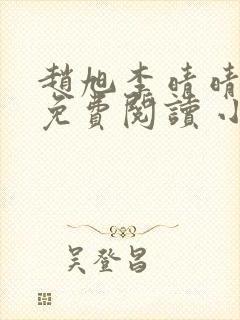 趙旭李晴晴
免費閱讀小
吴登昌